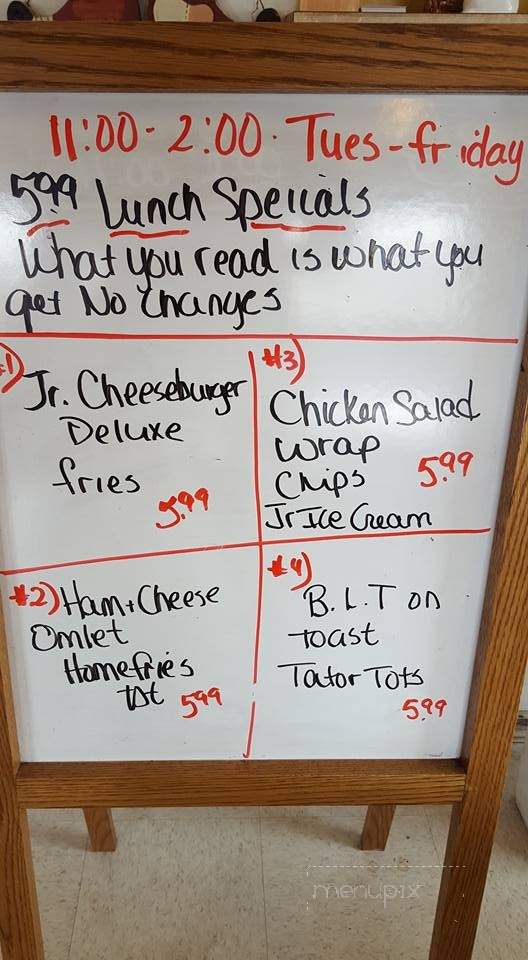 11:00 - 2:00 · Tues-friday
5.99 Lunch Specials
What you read is what you
get No changes
#1)
Jr. Cheeseburger
Deluxe
fries
5.99
#3)
Chicken Salad
wrap
Chips 5.99
Jr Ice Cream
#2) Ham + Cheese
Omlet
Homefries
tst 5.99
#4)
B.L.T on
toast
Tator Tots
5.99
menupix